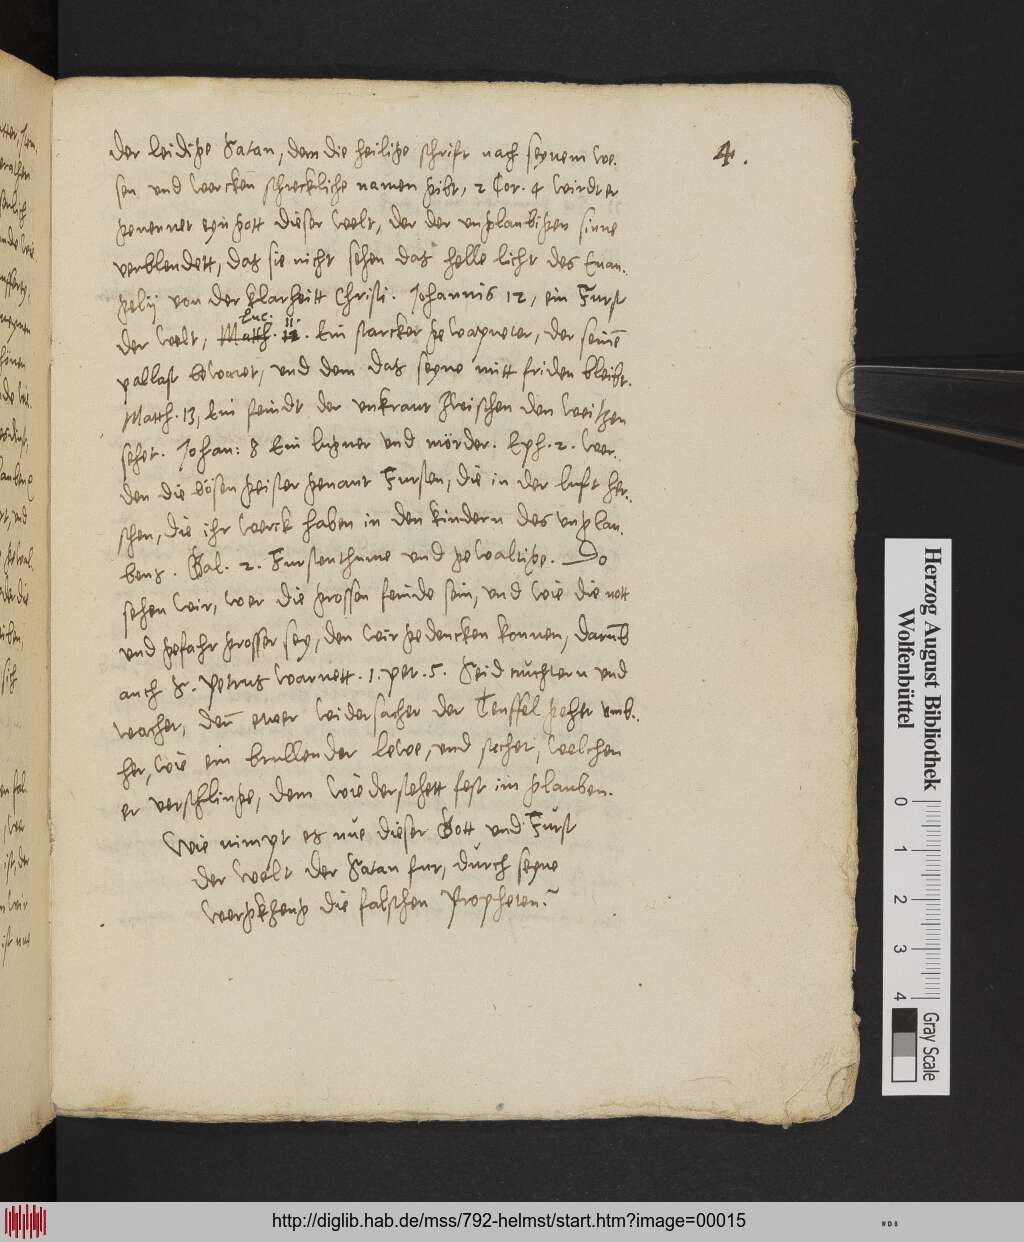 4.
der leidige Satan, dem die heilige schrifft nach seynem we-
sen und wercken schreckliche namen gibt, 2 Cor. 4 wirdt er
genennet eyn gott dieser welt, der der unglaubigen sinne
verblendett, das sie nicht sehen das helle licht des Euan-
gelij von der klarheitt Christi. Johannis 12, ein Furst
Luc. 11.
der welt, Matth. 12. Ein starcker gewapneter, der seinē
pallast bewaret, und dem das seyne mitt friden bleibt.
Matth. 13, Ein feindt der unkraut zwischen den weitzen
sehet. Johan: 8 Ein lugner und mörder. Eph. 2. wer-
den die bösen geister genant Fursten, die in der luft her-
schen, die ihr werck haben in den kindern des unglau-
bens. Gal. 2. Furstenthume und gewaltige. Do
sehen wir, wer die grossen feinde sein, und wie die nott
und gefahr grosser sey, den wir gedencken konnen, darūb
auch S. Petrus warnett. 1. pet. 5. Seid nuchtern und
wachet, deñ ewer widersacher der Teuffel gehet umb-
her, wie ein brullender lewe, und suchet, welchen
er verschlinge, dem widerstehett fest im glauben.
Wie nimpt es nue dieser Gott und Furst
der welt der Satan fur, durch seyne
werckzeug die falschen Propheten?
Herzog August Bibliothek
Wolfenbüttel
0 1 2 3 4
Gray Scale
http://diglib.hab.de/mss/792-helmst/start.htm?image=00015